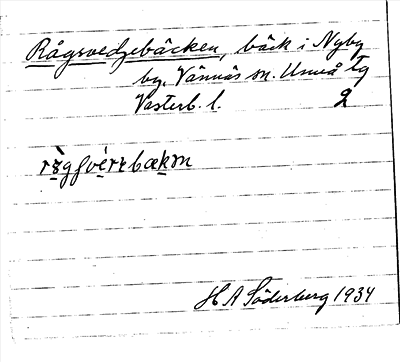 Rågsvedjebäcken, bäck i Nyby
by, Vännäs sn. Umeå tg
Västerb. l. 2
H A Söderberg 1934